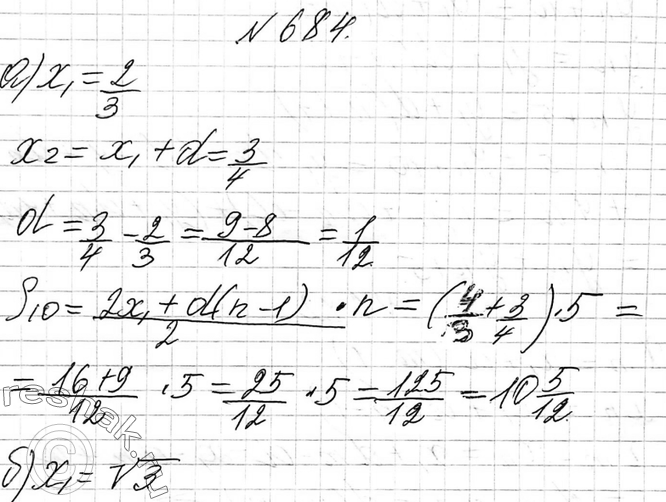 № 684.
а) x₁ = 2/3
x₂ = x₁ + d = 3/4
d = 3/4 - 2/3 = (9-8)/12 = 1/12.
S₁₀ = (2x₁ + d(n-1))/2 · n = (4/3 + 3/4) · 5 =
= (16+9)/12 · 5 = 25/12 · 5 = 125/12 = 10 5/12.
б) x₁ = √3